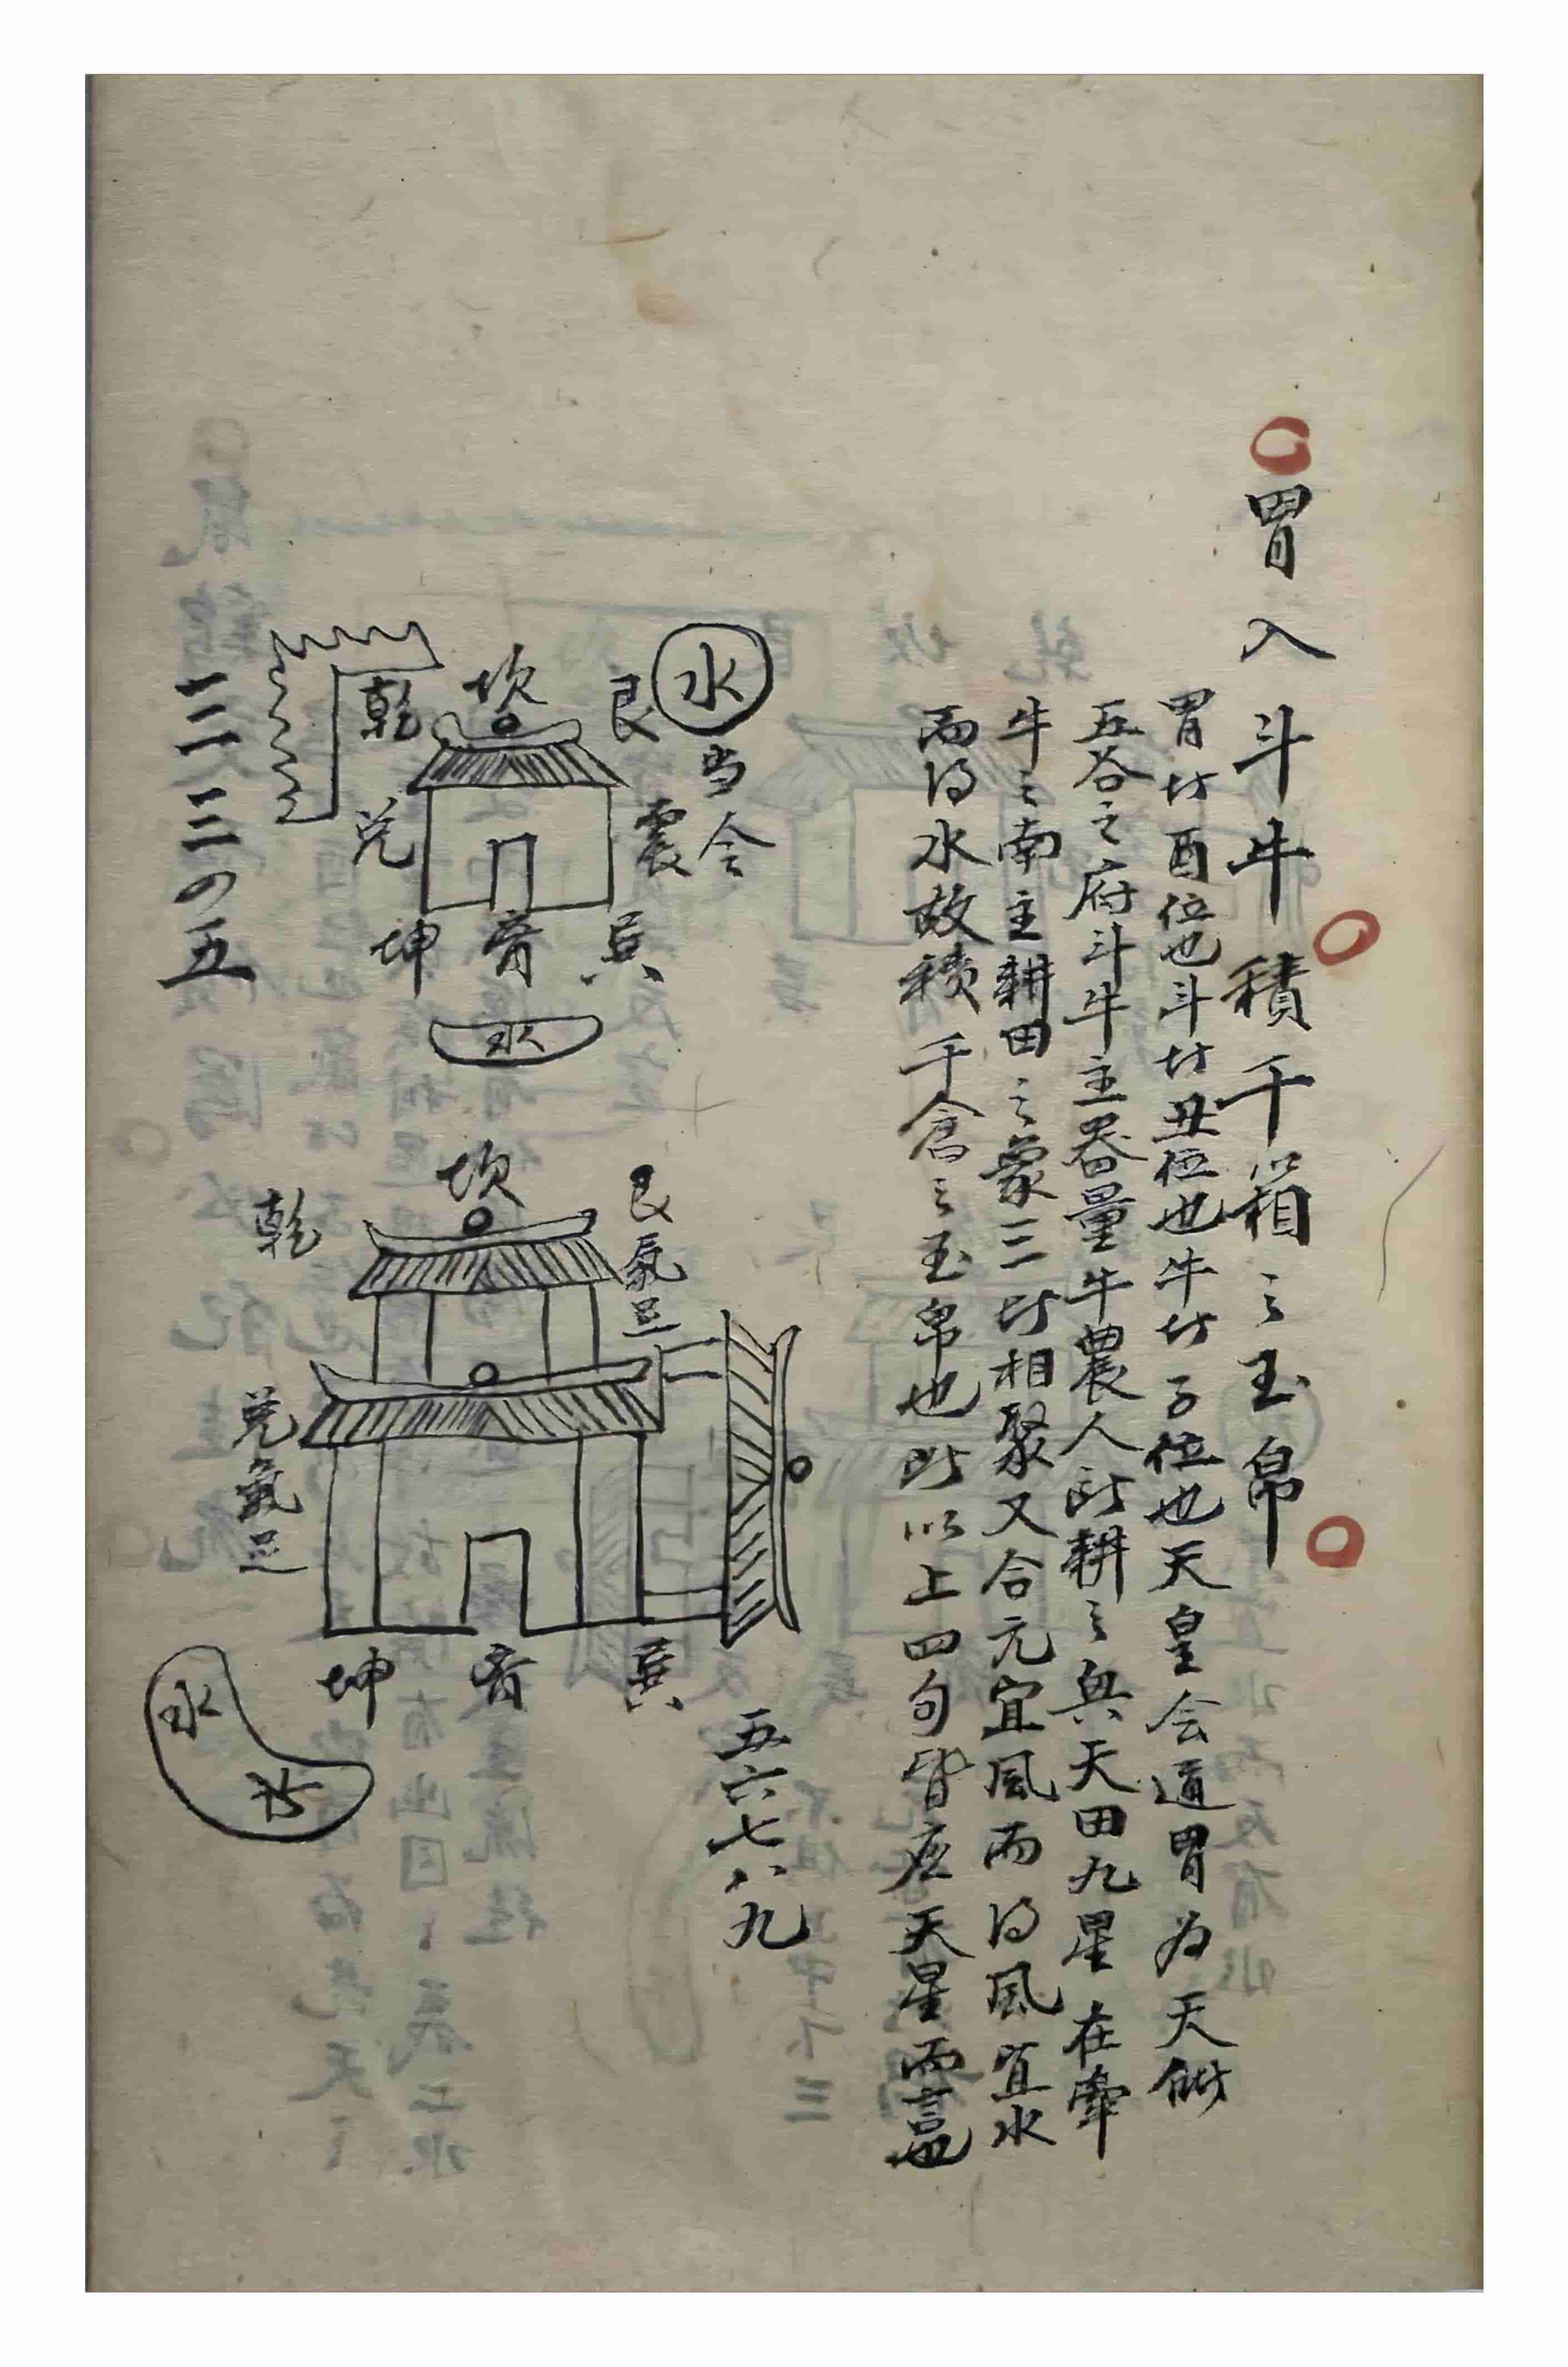 胃入斗牛積千箱之玉帛
胃坊酉位也斗坊丑位也牛坊子位也天皇会道胃为天
五谷之府斗牛主器量牛農人所耕之具天田九星在牽
牛之南主耕田之象三坊相聚又合元宜風而得風宜水
而得水故積千倉之玉帛也所以上四句皆应天星而言也
水
当令
艮
震
坎
乾
兑
巽
离
坤
水
一二三四五
坎
艮氣足
乾
兑氣足
巽
离
坤
水
水
五六七八九